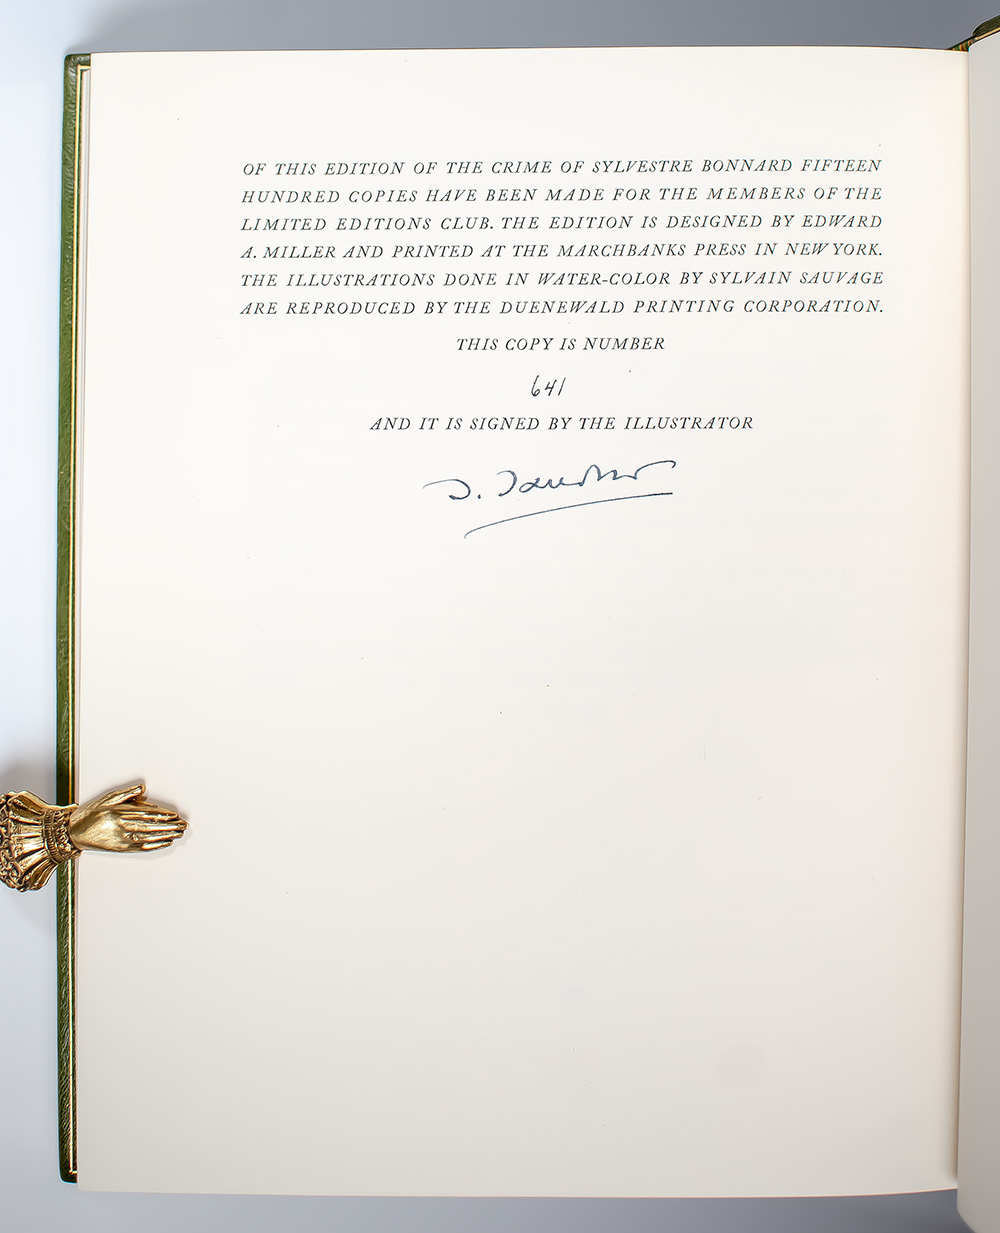 OF THIS EDITION OF THE CRIME OF SYLVESTRE BONNARD FIFTEEN
HUNDRED COPIES HAVE BEEN MADE FOR THE MEMBERS OF THE
LIMITED EDITIONS CLUB. THE EDITION IS DESIGNED BY EDWARD
A. MILLER AND PRINTED AT THE MARCHBANKS PRESS IN NEW YORK.
THE ILLUSTRATIONS DONE IN WATER-COLOR BY SYLVAIN SAUVAGE
ARE REPRODUCED BY THE DUENEWALD PRINTING CORPORATION.
THIS COPY IS NUMBER
641
AND IT IS SIGNED BY THE ILLUSTRATOR